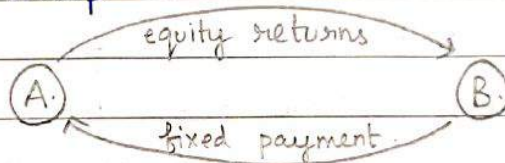 equity returns
A. B.
fixed payment.